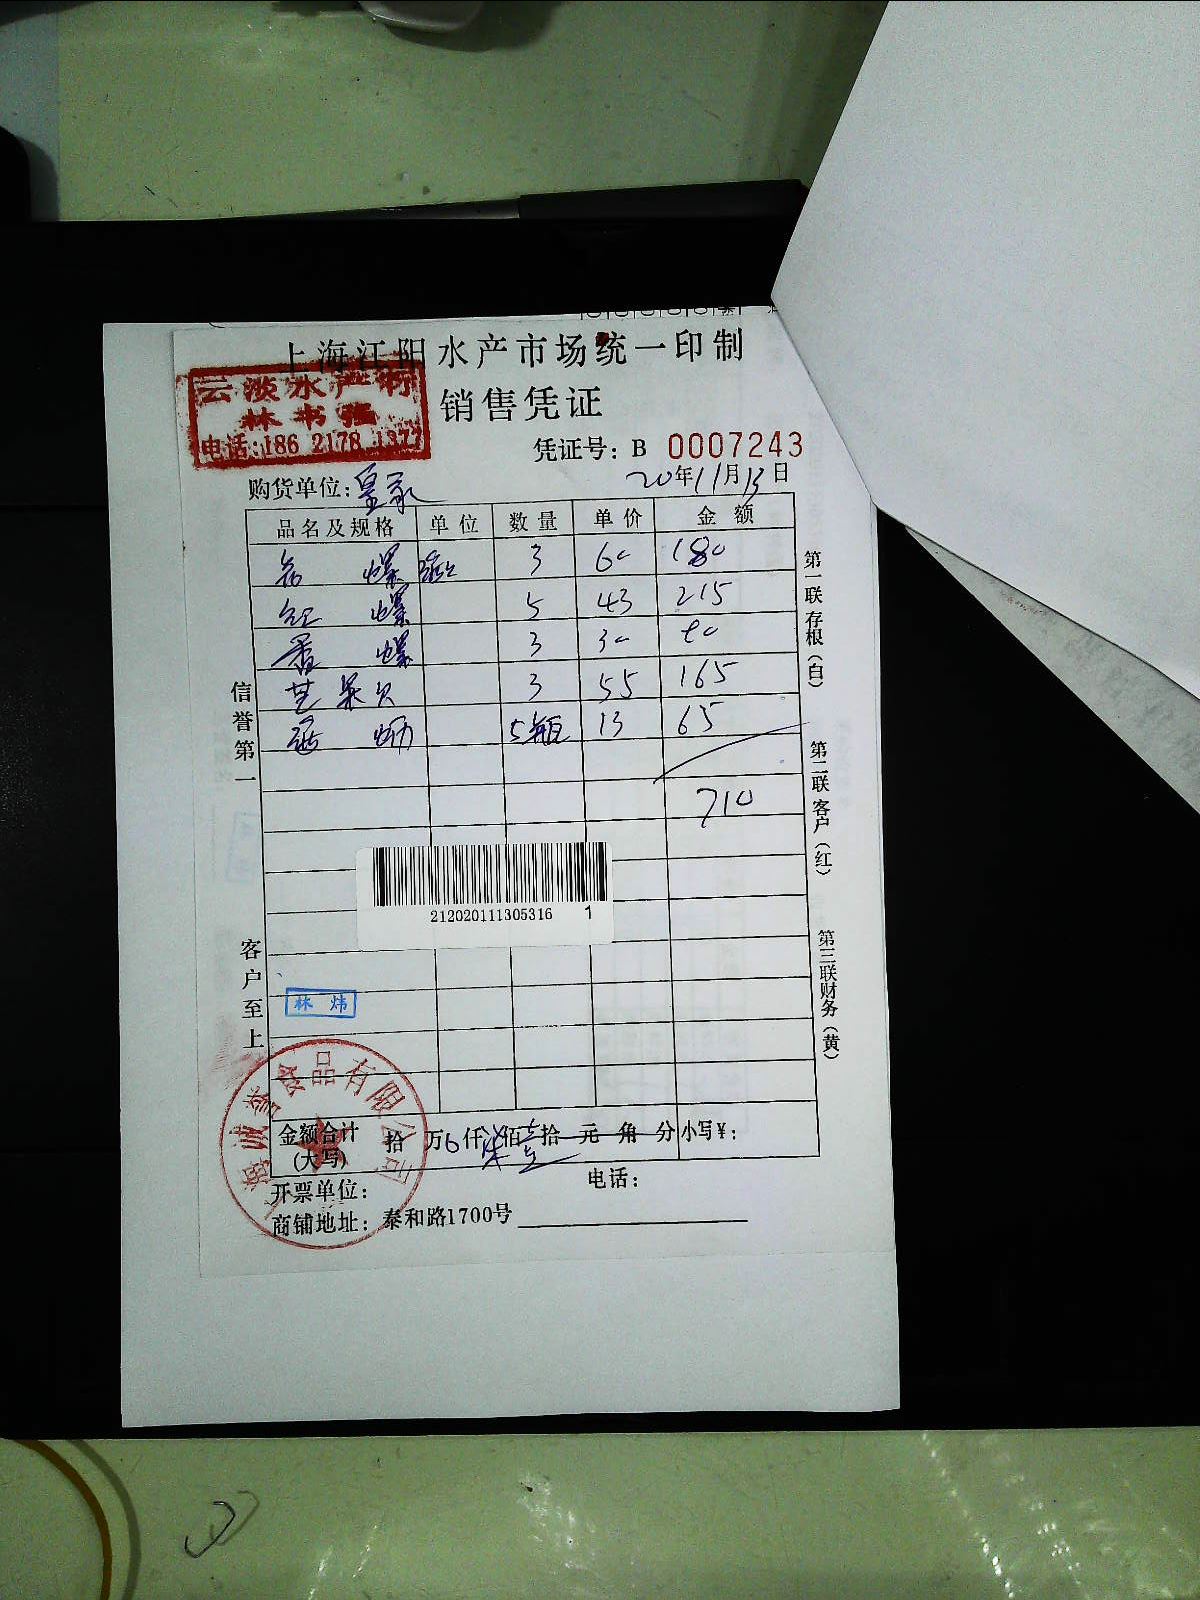 上海江阳水产市场统一印制
云淡水产行
林书强
电话:186 2178 1377
销售凭证
凭证号: B 0007243
购货单位:
20年11月13日
品名及规格 单位 数量 单价 金额
螺 3 60 180
红螺 5 43 215
螺 3 30 90
3 55 165
5瓶 13 65
710
信誉第一
客户至上
第一联存根(白)
第二联客户(红)
第三联财务(黄)
212020111305316 1
林炜
食品有限公司
金额合计(大写) 拾 万 仟 柒佰壹拾 元 角 分 小写¥:
开票单位: 电话:
商铺地址: 泰和路1700号